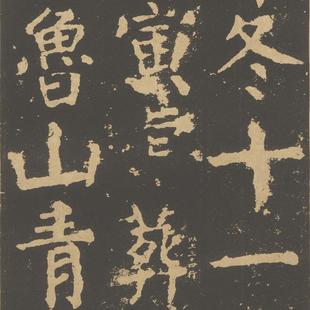 冬十一
寅葬
魯山青